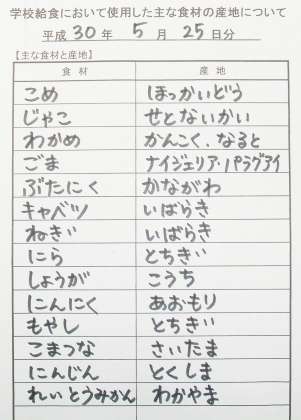 学校給食において使用した主な食材の産地について
平成 30 年 5 月 25 日分
【主な食材と産地】
食材 産地
こめ ほっかいどう
じゃこ せとないかい
わかめ かんこく、なると
ごま ナイジェリア・パラグアイ
ぶたにく かながわ
キャベツ いばらき
ねぎ いばらき
にら とちぎ
しょうが こうち
にんにく あおもり
もやし とちぎ
こまつな さいたま
にんじん とくしま
れいとうみかん わかやま